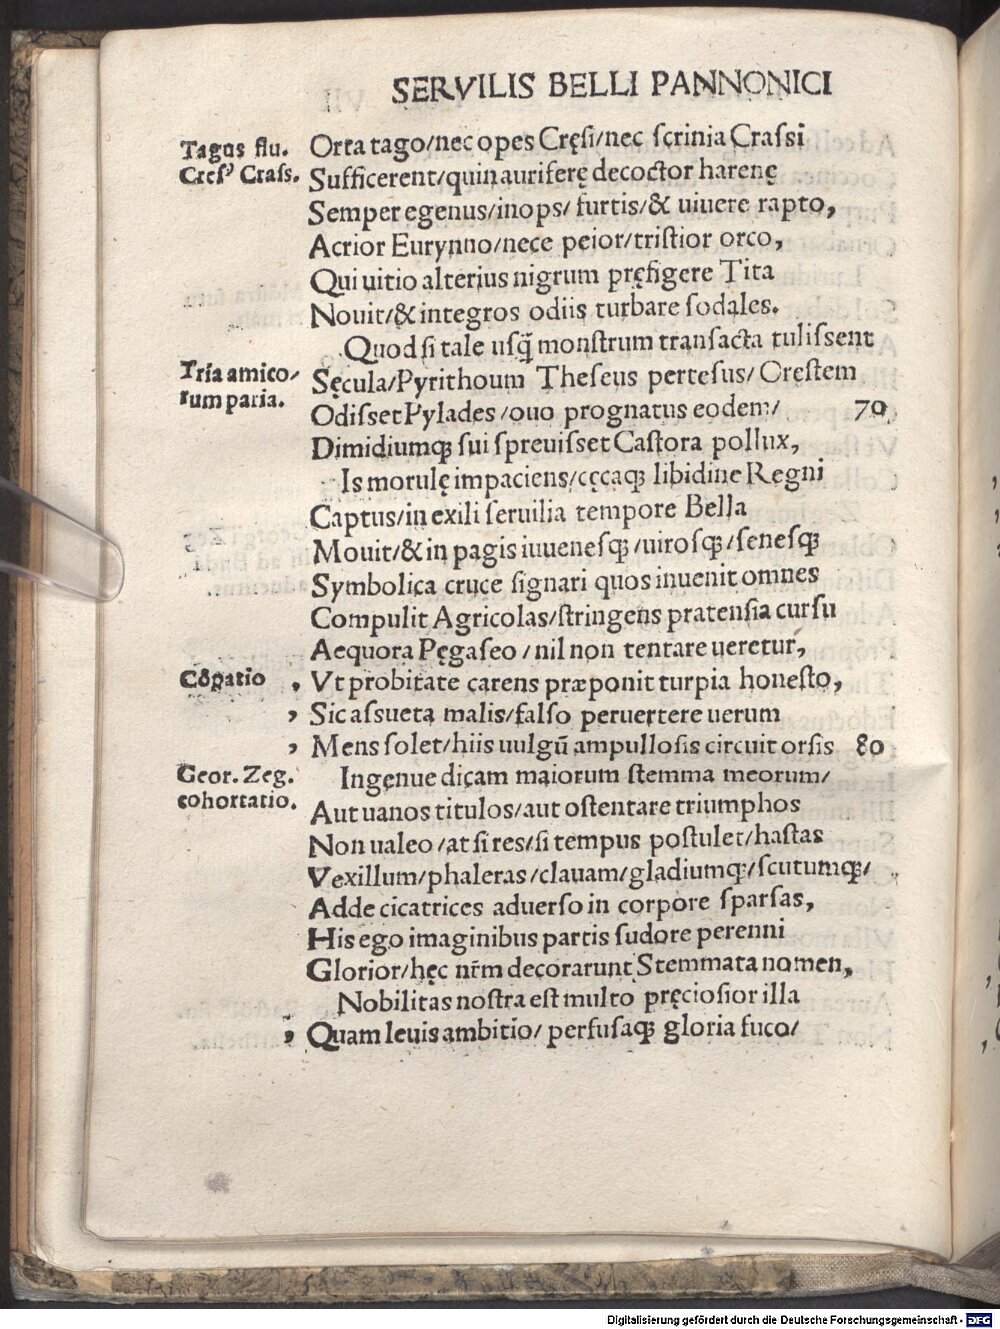 SERVILIS BELLI PANNONICI
Tagus flu.
Orta tago/nec opes Cręsi/nec ſcrinia Craſſi
Creſꝰ Craſſ.
Sufficerent/quin auriferę decoctor harenę
Semper egenus/inops/ furtis/& uiuere rapto,
Acrior Eurynno/nece peior/triſtior orco,
Qui uitio alterius nigrum pręfigere Tita
Nouit/& integros odiis turbare ſodales.
Quod ſi tale uſq̃ monſtrum tranſacta tuliſſent
Tria amico/
Sęcula/Pyrithoum Theſeus perteſus/ Oreſtem
rum paria.
Odiſſet Pylades /ouo prognatus eodem/ 70
Dimidiumqꝫ ſui ſpreuiſſet Caſtora pollux,
Is morulę impaciens/cęcaqꝫ libidine Regni
Captus/in exili ſeruilia tempore Bella
Mouit/& in pagis iuueneſqꝫ/uiroſqꝫ/ſeneſqꝫ
Symbolica cruce ſignari quos inuenit omnes
Compulit Agricolas/ſtringens pratenſia curſu
Aequora Pęgaſeo / nil non tentare ueretur,
Cōꝑatio
, Vt probitate carens præponit turpia honeſto,
, Sic aſſueta malis/falſo peruertere uerum
, Mens ſolet/hiis uulgū ampulloſis circuit orſis 80
Geor. Zeg.
Ingenue dicam maiorum ſtemma meorum/
cohortatio.
Aut uanos titulos/aut oſtentare triumphos
Non ualeo /at ſi res/ſi tempus poſtulet/haſtas
Vexillum/phaleras/clauam/gladiumqꝫ/ſcutumqꝫ/
Adde cicatrices aduerſo in corpore ſparſas,
His ego imaginibus partis ſudore perenni
Glorior/hęc nr̄m decorarunt Stemmata nomen,
Nobilitas noſtra eſt multo pręcioſior illa
, Quam leuis ambitio/ perfuſaqꝫ gloria fuco/
Digitalisierung gefördert durch die Deutsche Forschungsgemeinschaft - DFG